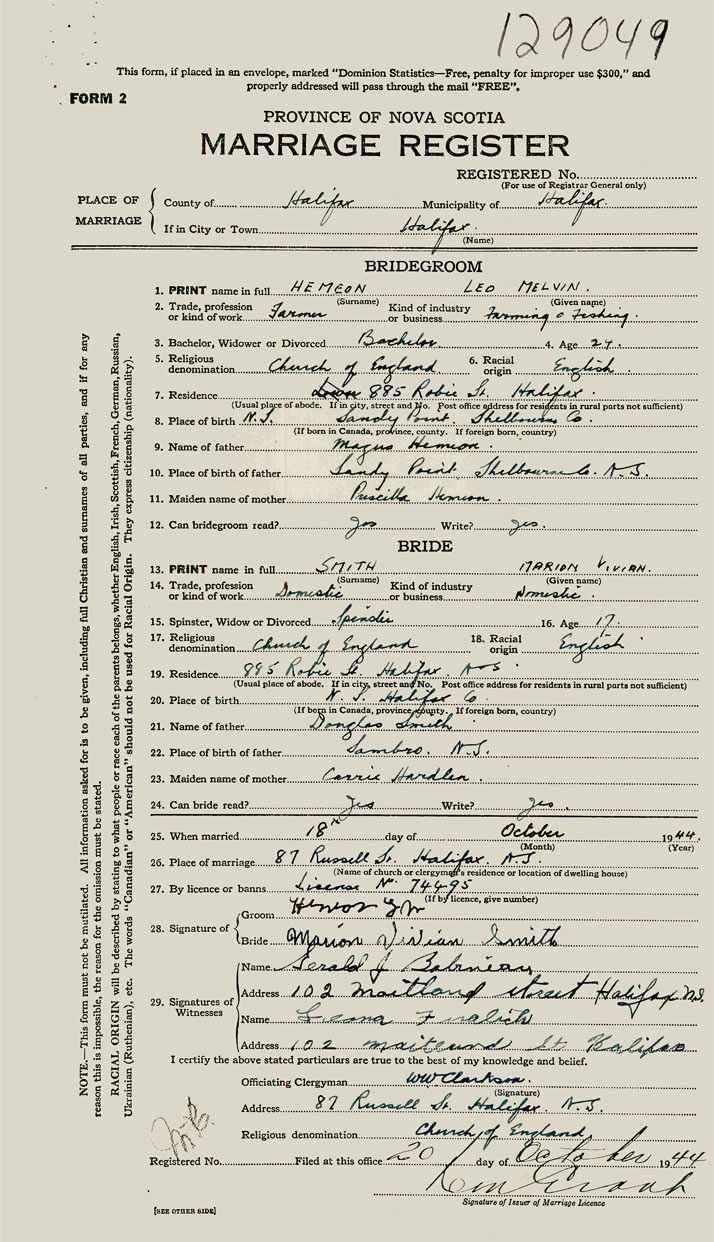 129049
This form, if placed in an envelope, marked "Dominion Statistics—Free, penalty for improper use $300," and
properly addressed will pass through the mail "FREE".
FORM 2
PROVINCE OF NOVA SCOTIA
MARRIAGE REGISTER
REGISTERED No.
(For use of Registrar General only)
PLACE OF MARRIAGE
County of Halifax Municipality of Halifax.
If in City or Town Halifax.
(Name)
BRIDEGROOM
1. PRINT name in full HEMEON LEO MELVIN.
(Surname) (Given name)
2. Trade, profession or kind of work Farmer Kind of industry or business Farming & Fishing.
3. Bachelor, Widower or Divorced Bachelor 4. Age 24.
5. Religious denomination Church of England 6. Racial origin English
7. Residence 895 Robie St. Halifax.
(Usual place of abode. If in city, street and No. Post office address for residents in rural parts not sufficient)
8. Place of birth N.S. Sandy Point. Shelburne Co.
(If born in Canada, province, county. If foreign born, country)
9. Name of father Hemeon.
10. Place of birth of father Sandy Point. Shelburne Co. N.S.
11. Maiden name of mother Priscilla Hemeon.
12. Can bridegroom read? yes Write? yes.
BRIDE
13. PRINT name in full SMITH MARION VIVIAN.
(Surname) (Given name)
14. Trade, profession or kind of work Domestic Kind of industry or business Domestic.
15. Spinster, Widow or Divorced 16. Age 17.
17. Religious denomination Church of England 18. Racial origin English
19. Residence 895 Robie St. Halifax. N S
(Usual place of abode. If in city, street and No. Post office address for residents in rural parts not sufficient)
20. Place of birth N.S. Halifax Co.
(If born in Canada, province, county. If foreign born, country)
21. Name of father Douglas Smith
22. Place of birth of father Sambro. N.S.
23. Maiden name of mother Carrie
24. Can bride read? Yes Write? Yes.
25. When married 18th day of October 1944.
(Month) (Year)
26. Place of marriage 87 Russell St. Halifax. N.S.
(Name of church or clergyman's residence or location of dwelling house)
27. By licence or banns License No. 74495
(If by licence, give number)
28. Signature of
Groom
Bride Marion Vivian Smith
29. Signatures of Witnesses
Name Gerald J
Address 102 Maitland street Halifax N.S.
Name
Address 102 St Halifax
I certify the above stated particulars are true to the best of my knowledge and belief.
Officiating Clergyman WW Clarkson.
(Signature)
Address 87 Russell St. Halifax. N.S.
Religious denomination Church of England
Registered No. Filed at this office 20 day of October 1944
Signature of Issuer of Marriage Licence
[SEE OTHER SIDE]
NOTE.—This form must not be mutilated. All information asked for is to be given, including full Christian and surnames of all parties, and if for any
reason this is impossible, the reason for the omission must be stated.
RACIAL ORIGIN will be described by stating to what people or race each of the parents belongs, whether English, Irish, Scottish, French, German, Russian,
Ukrainian (Ruthenian), etc. The words "Canadian" or "American" should not be used for Racial Origin. They express citizenship (nationality).